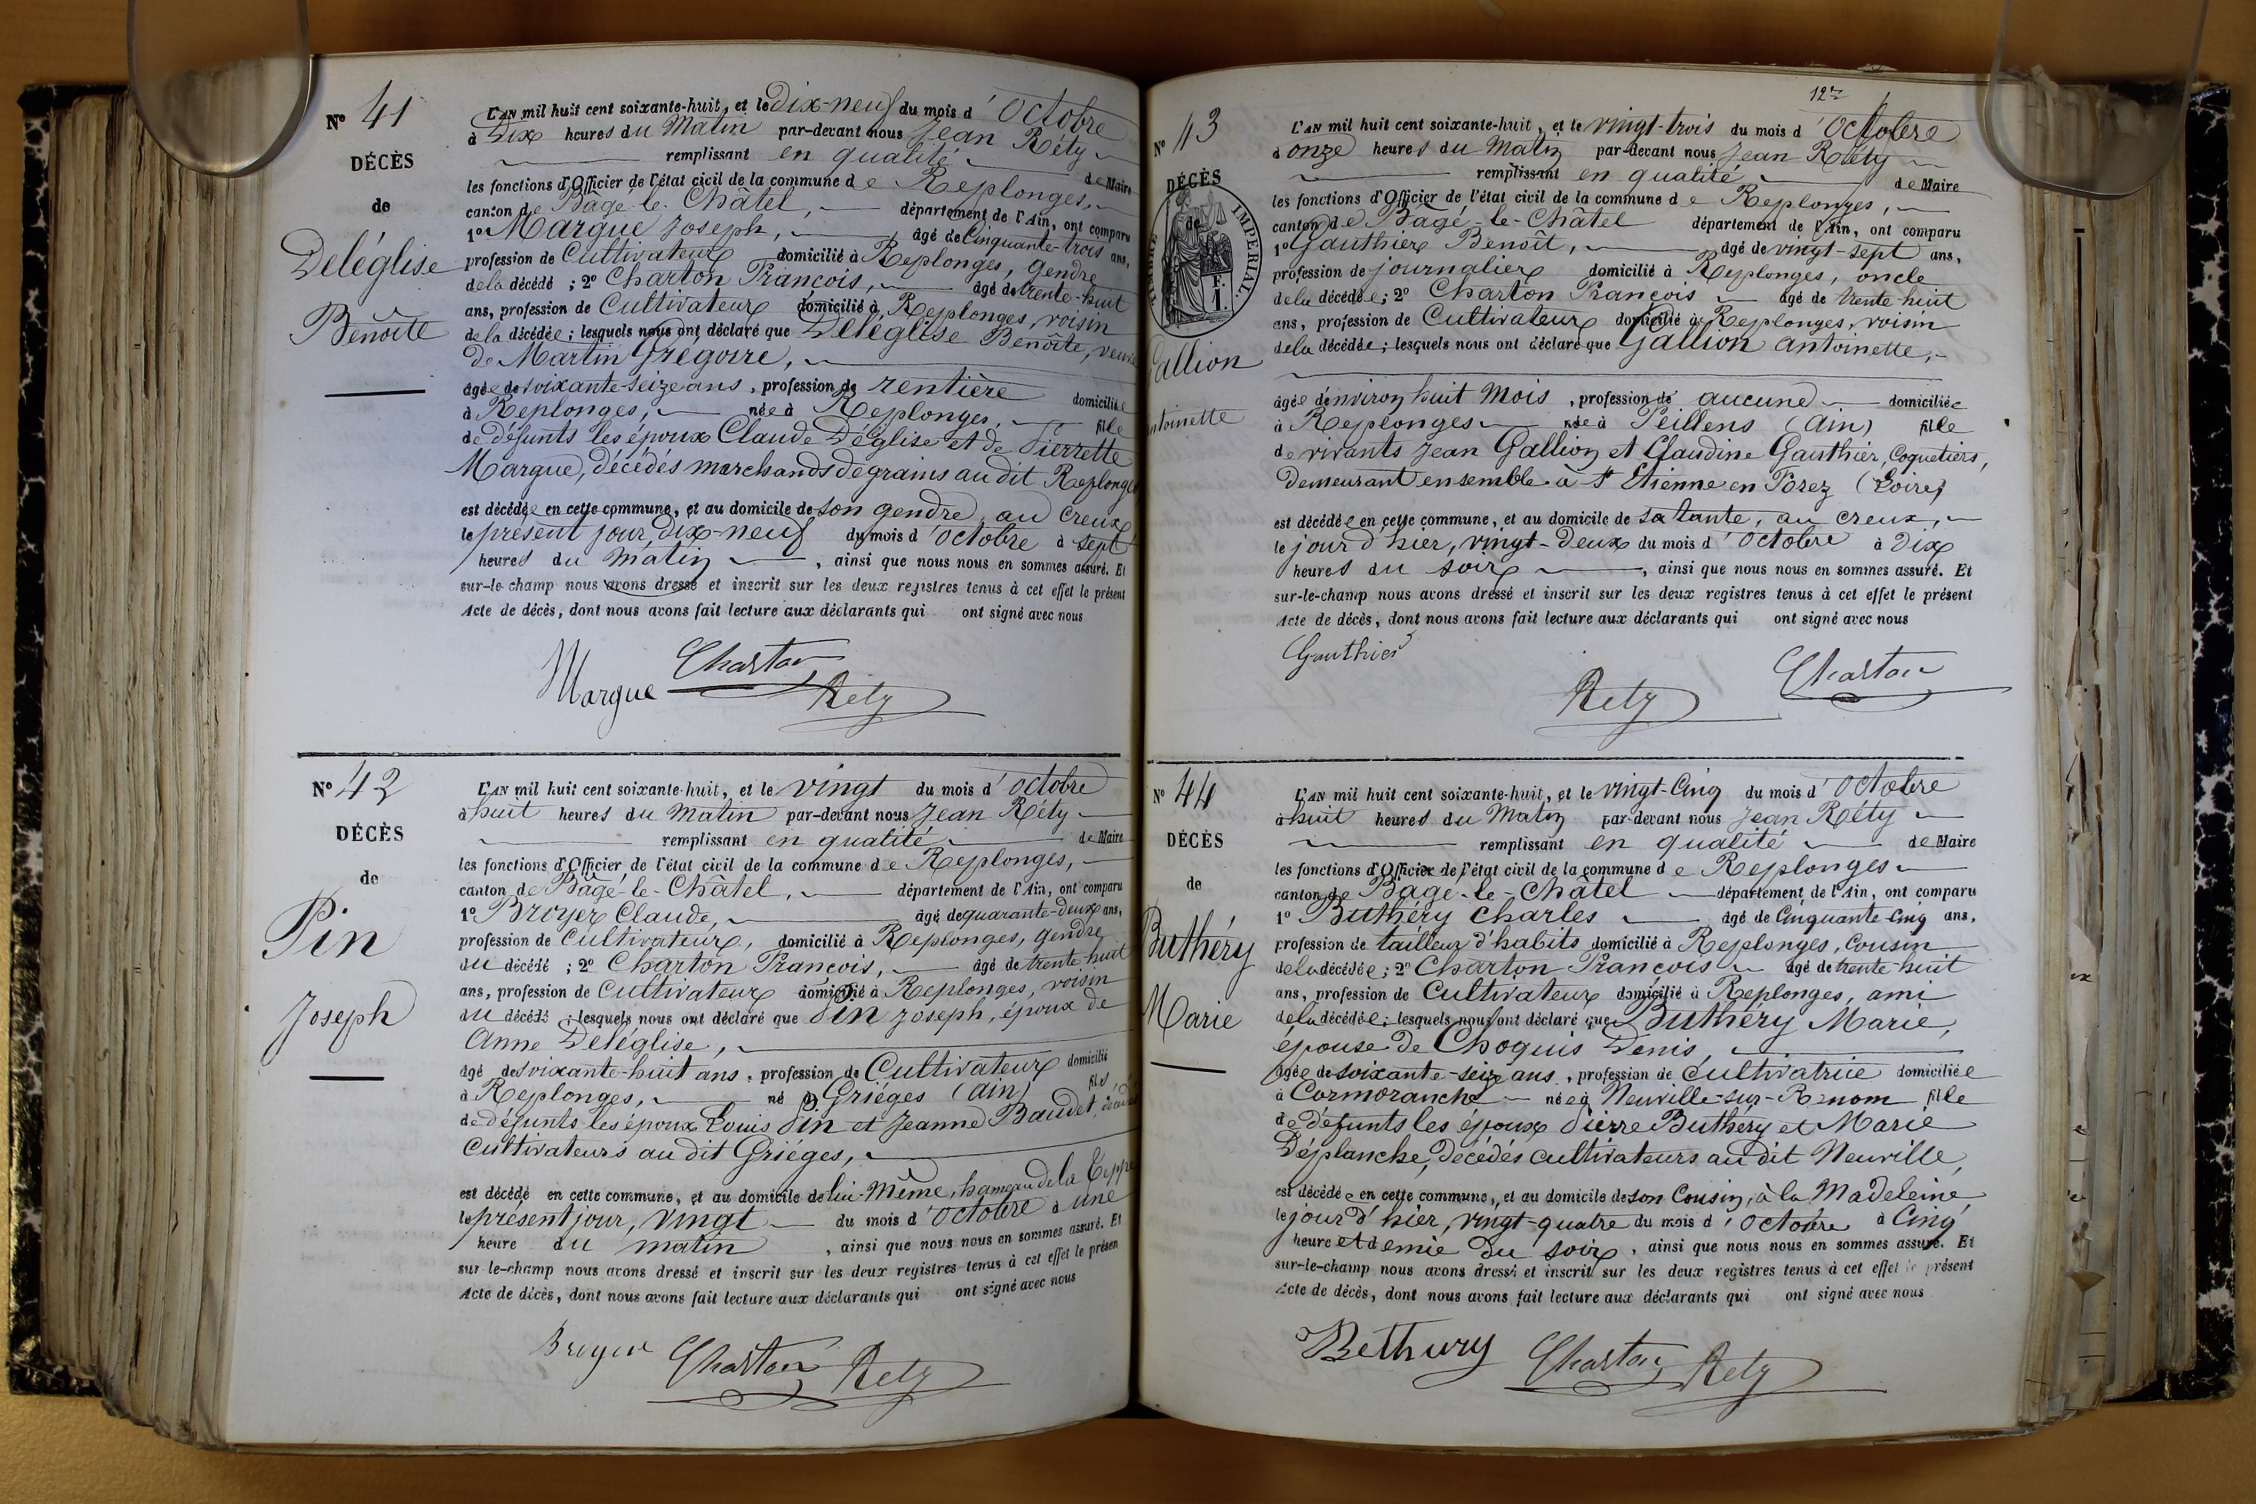 N° 41
DÉCÈS
de
Deléglise
Benoîte
L'AN mil huit cent soixante-huit, et le Dix-neuf du mois d'Octobre
à Dix heures du Matin par-devant nous Jean Réty
remplissant en qualité de Maire
les fonctions d'Officier de l'état civil de la commune de Replonges,
canton de Bâgé-le-Châtel, département de l'Ain, ont comparu
1° Margue Joseph, âgé de Cinquante-trois ans,
profession de Cultivateur domicilié à Replonges, gendre
de la décédé ; 2° Charton François, âgé de trente-huit
ans, profession de Cultivateur domicilié à Replonges, voisin
de la décédée ; lesquels nous ont déclaré que Deléglise Benoîte, veuve
de Martin Grégoire,
âgée de soixante-seize ans, profession de rentière domiciliée
à Replonges, née à Replonges, fille
de défunts les époux Claude Déglise et de Pierrette
Margue, décédés marchands de grains au dit Replonges
est décédée en cette commune, et au domicile de son gendre, au Creux
le présent jour, Dix-neuf du mois d'Octobre à sept
heures du matin, ainsi que nous nous en sommes assuré. Et
sur-le-champ nous avons dressé et inscrit sur les deux registres tenus à cet effet le présent
Acte de décès, dont nous avons fait lecture aux déclarants qui ont signé avec nous
Margue Charton Rety
N° 42
DÉCÈS
de
Pin
Joseph
L'AN mil huit cent soixante-huit, et le vingt du mois d'Octobre
à huit heures du Matin par-devant nous Jean Réty
remplissant en qualité de Maire
les fonctions d'Officier de l'état civil de la commune de Replonges,
canton de Bâgé-le-Châtel, département de l'Ain, ont comparu
1° Broyer Claude, âgé de quarante-deux ans,
profession de Cultivateur, domicilié à Replonges, gendre
du décédé ; 2° Charton François, âgé de trente-huit
ans, profession de Cultivateur domicilié à Replonges, voisin
du décédé ; lesquels nous ont déclaré que Pin Joseph, époux de
Anne Deléglise,
âgé de soixante-huit ans, profession de Cultivateur domicilié
à Replonges, né à Griéges (Ain) fils
de défunts les époux Louis Pin et Jeanne Baudet,
Cultivateurs au dit Griéges,
est décédé en cette commune, et au domicile de lui-même, hameau de la Teppe
le présent jour, vingt du mois d'Octobre à une
heure du matin, ainsi que nous nous en sommes assuré. Et
sur-le-champ nous avons dressé et inscrit sur les deux registres tenus à cet effet le présen
Acte de décès, dont nous avons fait lecture aux déclarants qui ont signé avec nous
Broyer Charton Rety
N° 43
DÉCÈS
de
TIMBRE IMPERIAL.
F. 1
Gallion
Antoinette
L'AN mil huit cent soixante-huit, et le vingt-trois du mois d'Octobre
à onze heures du Matin par-devant nous Jean Réty
remplissant en qualité de Maire
les fonctions d'Officier de l'état civil de la commune de Replonges,
canton de Bagé-le-Châtel département de l'Ain, ont comparu
1° Gauthier Benoît, âgé de vingt-sept ans,
profession de journalier domicilié à Replonges, oncle
de la décédée ; 2° Charton François âgé de trente-huit
ans, profession de Cultivateur domicilié à Replonges, voisin
de la décédée ; lesquels nous ont déclaré que Gallion Antoinette,
âgée de environ huit Mois, profession de aucune domiciliée
à Replonges née à Peillens (Ain) fille
de vivants Jean Gallion et Claudine Gauthier, Coquetiers,
demeurant ensemble à St Etienne en Forez (Loire)
est décédée en cette commune, et au domicile de sa tante, au creux,
le jour d'hier, vingt-deux du mois d'Octobre à Dix
heures du soir, ainsi que nous nous en sommes assuré. Et
sur-le-champ nous avons dressé et inscrit sur les deux registres tenus à cet effet le présent
Acte de décès, dont nous avons fait lecture aux déclarants qui ont signé avec nous
Gauthier Rety Charton
N° 44
DÉCÈS
de
Buthéry
Marie
L'AN mil huit cent soixante-huit, et le vingt-Cinq du mois d'Octobre
à huit heures du Matin par-devant nous Jean Réty
remplissant en qualité de Maire
les fonctions d'Officier de l'état civil de la commune de Replonges
canton de Bâgé-le-Châtel département de l'Ain, ont comparu
1° Buthéry Charles âgé de Cinquante-Cinq ans,
profession de tailleur d'habits domicilié à Replonges, Cousin
de la décédée ; 2° Charton François âgé de trente-huit
ans, profession de Cultivateur domicilié à Replonges, ami
de la décédée ; lesquels nous ont déclaré que Buthéry Marie,
épouse de Choquis Denis,
âgée de soixante-seize ans, profession de Cultivatrice domiciliée
à Cormoranche née à Neuville-sur-Renom fille
de défunts les époux Pierre Buthéry et Marie
Déplanche, décédés cultivateurs au dit Neuville,
est décédée en cette commune, et au domicile de son Cousin, à la Madeleine
le jour d'hier, vingt-quatre du mois d'Octobre à Cinq
heure et demie du soir, ainsi que nous nous en sommes assuré. Et
sur-le-champ nous avons dressé et inscrit sur les deux registres tenus à cet effet le présent
Acte de décès, dont nous avons fait lecture aux déclarants qui ont signé avec nous
Bethury Charton Rety